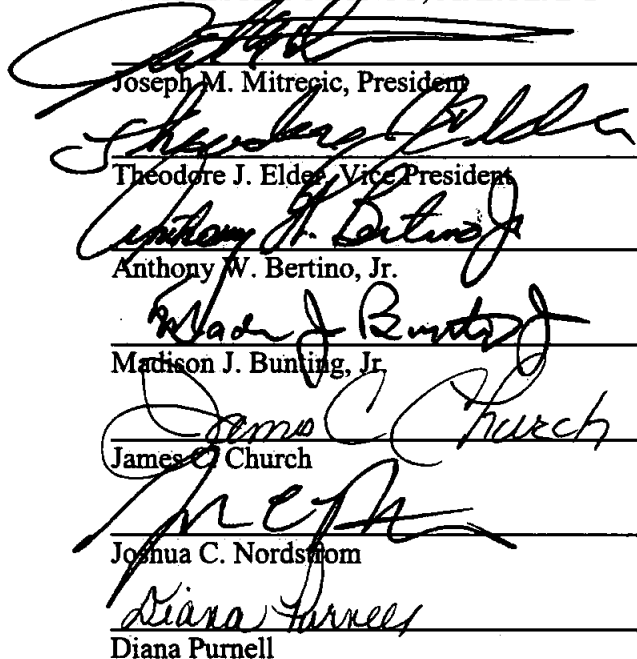 Joseph M. Mitrecic, President
Theodore J. Elder
Theodore J. Elder, Vice President
Anthony W. Bertino Jr
Anthony W. Bertino, Jr.
Madison J Bunting Jr
Madison J. Bunting, Jr.
James C Church
James C. Church
Joshua C. Nordstrom
Diana Purnell
Diana Purnell